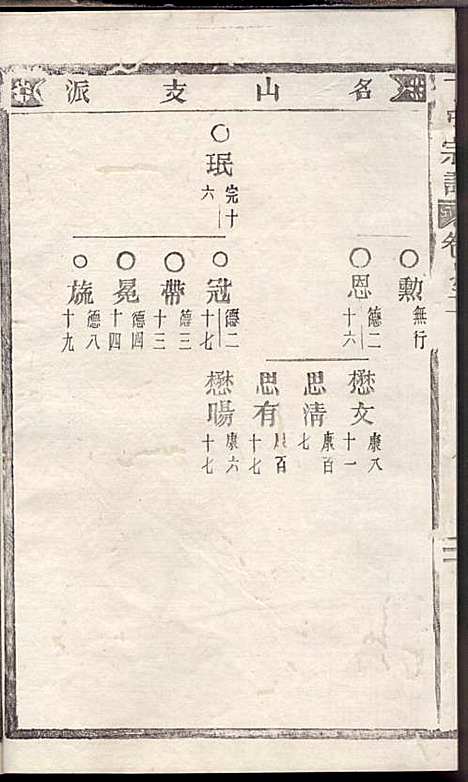 名山支派
珉 完十六
勲 無行
恩 德二十六
冠 德二十七
帶 德三十三
冕 德四十四
旒 德八十九
懋文 康八十一
思清 康百七
思有 康百十七
懋暘 康六十七
宗譜
卷